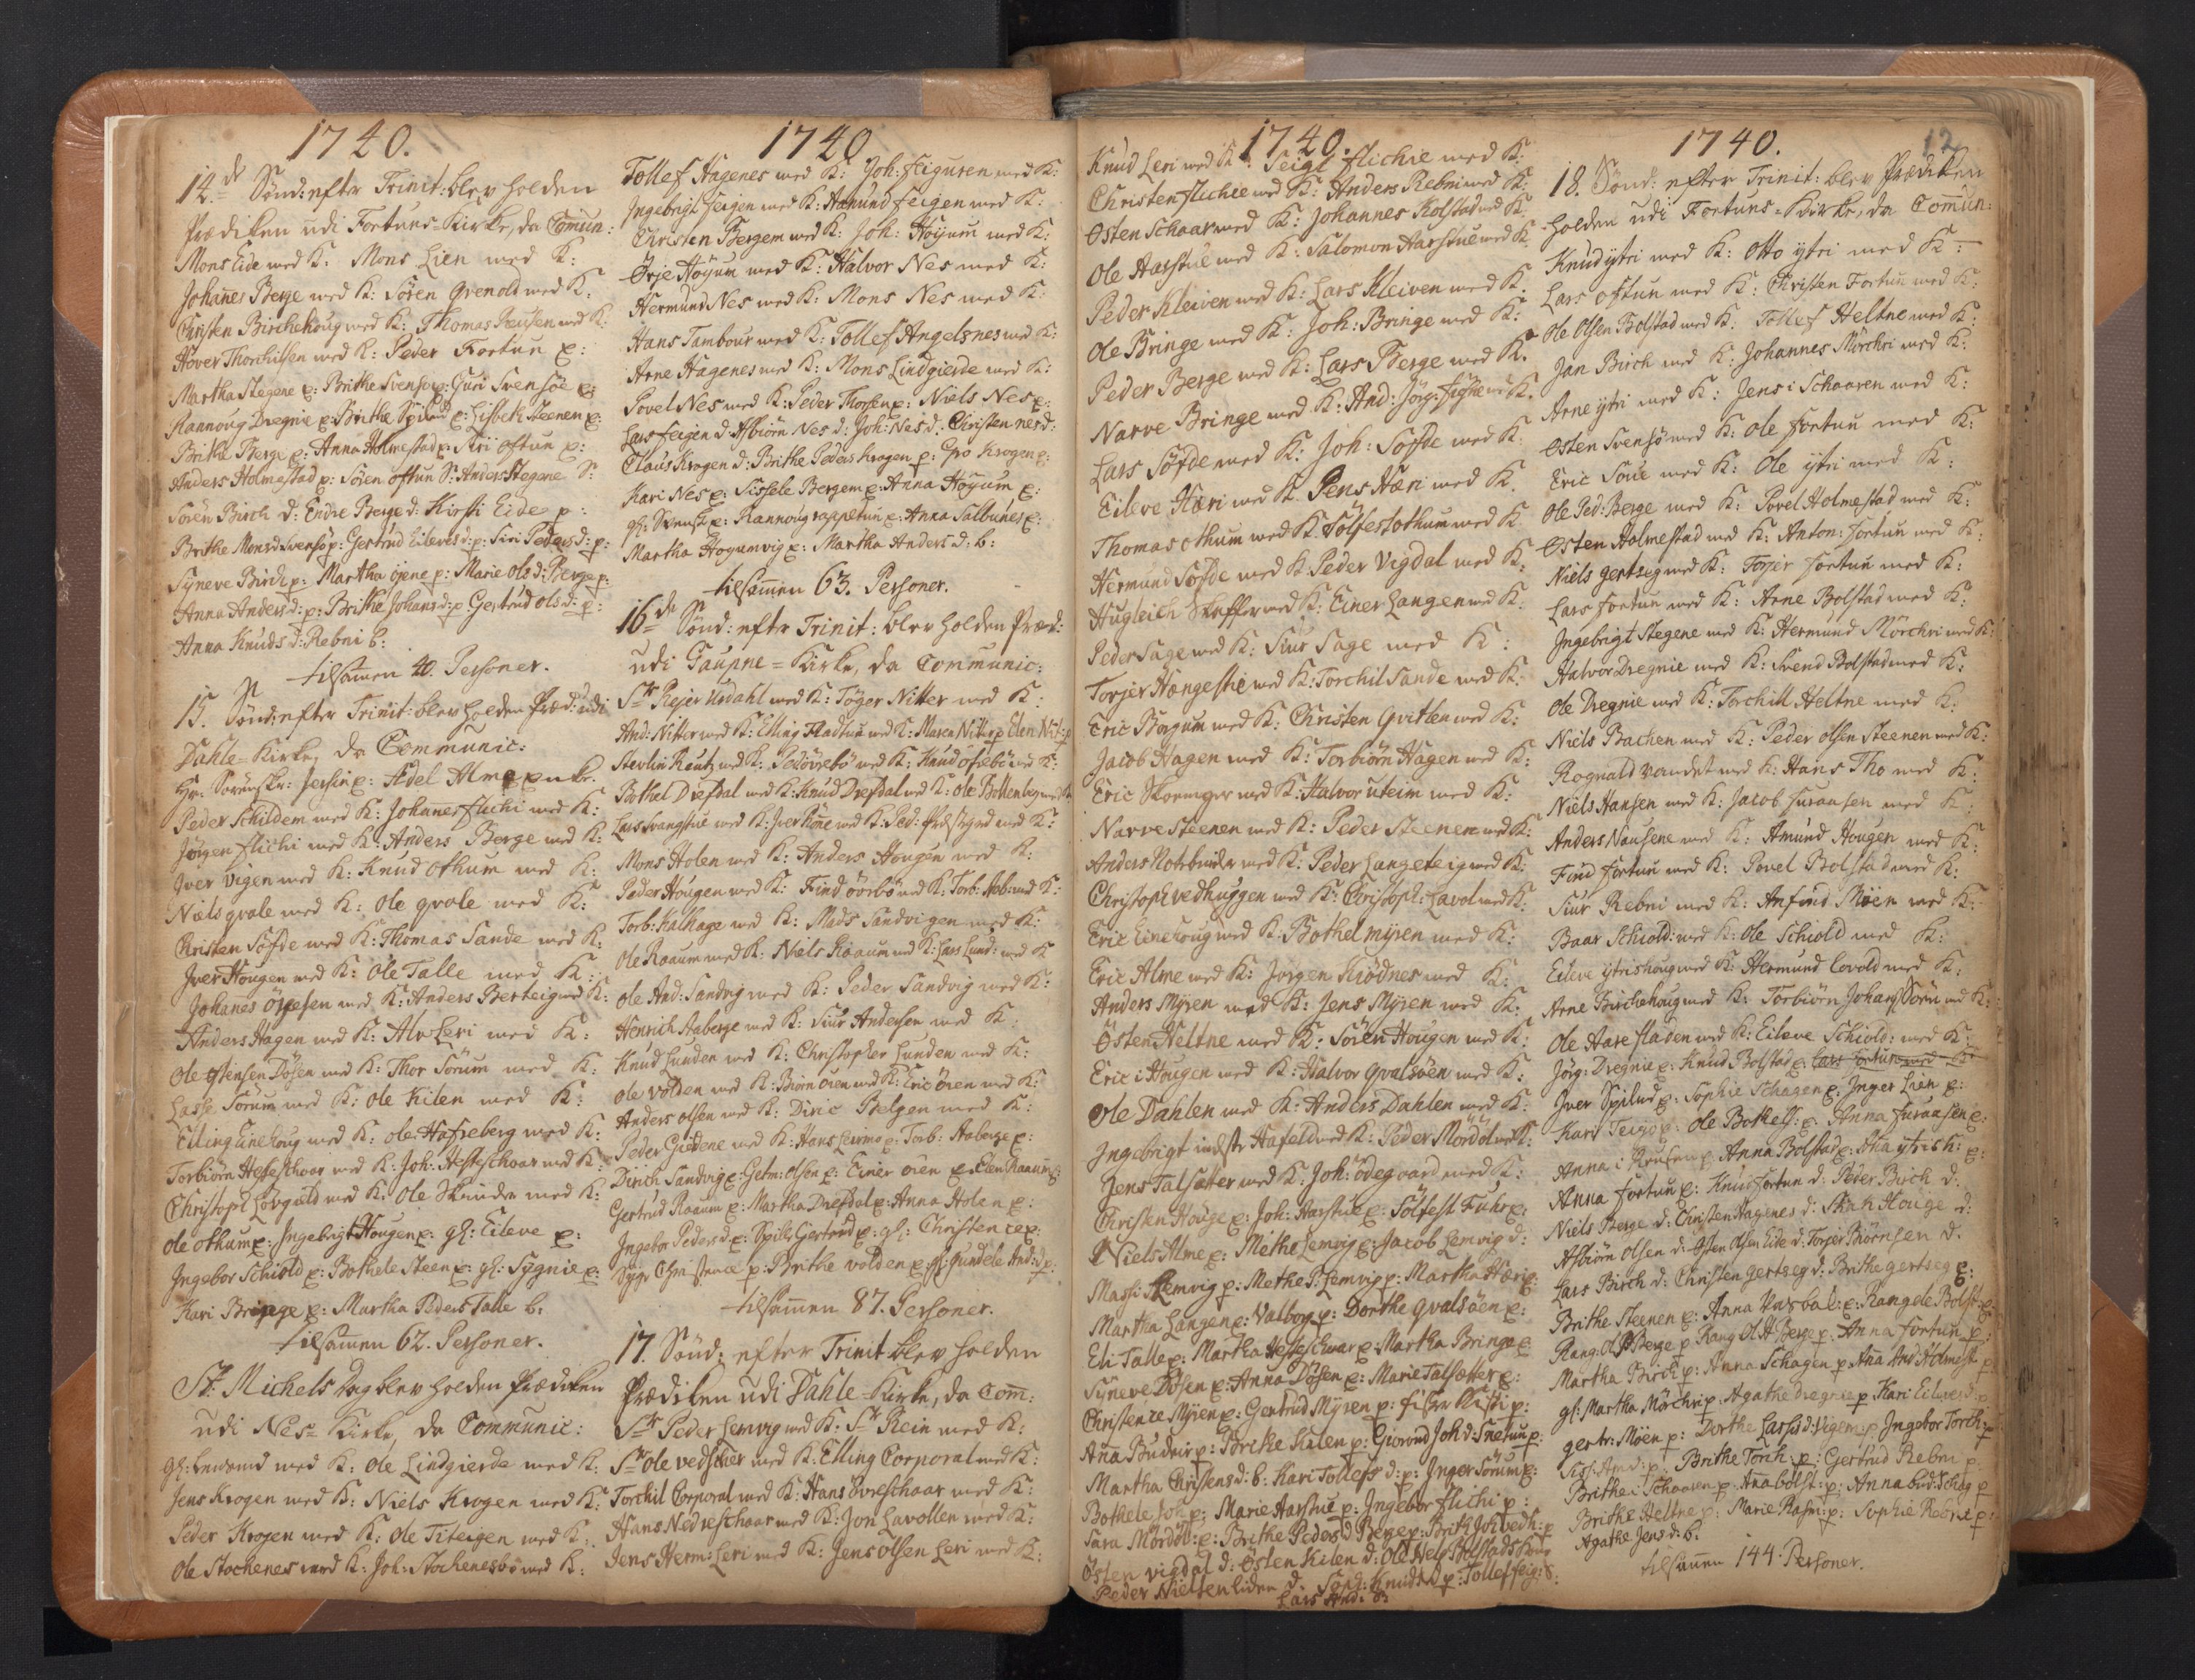 1740.
14.de Sönd: efter Trinit: blev holden
Prædiken udi Fortuns-Kirke, da Comun:
Mons Eide med K: Mons Lien med K:
Johanes Berge med K: Sören Qvenold med K.
Christen Birchehoug med K: Thomas Paulsen med K:
Höver Thorchilsen med K: Peder Fortun e:
Martha Stegene e: Brithe Svensöe p: Guri Svensöe e:
Rannoug Dregnie e: Brithe Spilud e: Lisbeth Steenen e:
Brithe Berge e: Anna Holmestad p: Siri oftun e:
Anders Holmestad p: Sören oftun S: Anders Stegene S:
Sören Birch d: Endre Berge d: Kirsti Eide p:
Brithe Monsd Svensö p: Gertrud Eilevsd: p: Siri Pedersd: p:
Syneve Birch p: Martha öjene p: Marie Olsd: Berge p:
Anna Andersd: p: Brithe Johansd: p Gertrud olsd: p:
Anna Knudsd: Rebni b:
tilsamen 40. Personer.
15. Sönd: efter Trinit: blev holden Præd: udi
Dahle-Kirke, da Communic:
Hr: Sorenskr: Jersin e: Adel Alme enke.
Peder Schildem med K: Johanes flichi med K:
Jörgen flichi med K: Anders Berge med K:
Iver Vigen med K: Knud Othum med K:
Niels qvale med K: Ole qvale med K:
Christen Söfde med K: Thomas Sande med K:
Iver Hougen med K: Ole Talle med K:
Johanes Örjesen med K: Anders Berteig med K:
Anders Hagen med K: Alv Leri med K:
Ole Ostensen Dösen med K: Thor Sörum med K:
Lasse Sörum med K: Ole Kilen med K:
Elling Einehoug med K: Ole Hafreberg med K:
Torbiörn Hesteschoar med K: Joh: Hesteschoar med K:
Christoph Lövguld med K: Ole Skinder med K:
Ole Othum e: Ingebrigt Hougen e: gl: Eileve e:
Ingebor Schiold e: Bothele Steen e: gl: Sygnie e:
Kari Bringe e: Martha Peders Talle b:
tilsamen 62. Personer.
St: Michels Dag blev holden Prædiken
udi Nes-Kirke, da Communic:
gl: med K: Ole Lindgierde med K:
Jens Krogen med K: Niels Krogen med K:
Peder Krogen med K: Ole Titeigen med K:
Ole Stochenes med K: Joh: Stochenesbö med K:
1740
Tollef Hagenes med K: Joh: feiguren med K:
Ingebrigt feigen med K: Hamund feigen med K:
Christen Bergem med K: Joh: Höyum med K:
Örje Höyum med K: Halvor Nes med K:
Hermund Nes med K: Mons Nes med K:
Hans Tambour med K: Tollef Angelsnes med K:
Arne Hagenes med K: Mons Lindgierde med K:
Povel Nes med K: Peder Thorsen p: Niels Nes e:
Lars feigen d: Asbiörn Nes d: Joh: Nes d: Christen nes d:
Claus Krogen d: Brithe Peders Krogen p: Gro Krogen e:
Kari Nes e: Sissele Bergem e: Anna Höyum e:
gl: Svensk e: Rannoug Rappetun e: Anna Salbunes e:
Martha Hoyumvig e: Martha Anders d: b:
tilsamen 63. Personer.
16.de Sönd: efter Trinit: blev holden Præd:
udi Gaupne-Kirke, da Communic:
Sr Rejer Urdahl med K: Töger Nitter med K:
And: Nitter med K: Elling Fladhus med K: Maren Nitter p Elen Nit: p
Stevlin Reutz med K: Ped: övrebö med K: Knud ofrebö med K:
Bothel Drefdal med K: Knud Drefdal med K: Ole Bollenberg med K:
Lars Svangstue med K: Iver Röne med K: Ped: Prestegrd med K:
Mons Holen med K: Anders Hougen med K:
Peder Hougen med K: Find övrbö med K: Torb: Aab: med K:
Torb: Kalhage med K: Mads Sandvigen med K:
Ole Raaum med K: Niels Raaum med K: Lars Lund: med K
Ole And: Sandvig med K: Peder Sandvig med K:
Henrich Aaberge med K: Siur Andersen med K:
Knud Lunden med K: Christopher Lunden med K:
Ole volden med K: Biörn öien med K: Eric ören med K:
Anders olsen med K: Diric Belgen med K:
Peder Giedene med K: Hans Leirmo e: Torb: Aaberge e:
Dirich Sandvig e: Getm: olsen e: Einer öien e: Elen Raaum e:
Gertrud Raaum e: Martha Drefdal e: Anna Holen e:
Ingebor Pedersd e: Spille Gertrud e: gl: Christence e:
Syge Christence p: Brithe volden e: gl: Gundele And:d p:
tilsamen 87. Personer.
17. Sönd: efter Trinit blev holden
Prædiken udi Dahle-Kirke, da Com:
Sr Peder Lemvig med K: Sr Rein med K:
Sr Ole vedscher med K: Elling Corporal med K:
Torchil Corporal med K: Hans övreschaar med K:
Hans Nedreschaar med K: Jon Lavollen med K:
Jens Herm: Leri med K: Jens Olsen Leri med K:
1740.
Knud Leri med K: Seigl flichie med K:
Christen flichie med K: Anders Rebni med K:
Osten Schaar med K: Johannes Kolstad med K:
Ole Harstue med K: Salomon Harstue med K:
Peder Kleiven med K: Lars Kleiven med K:
Ole Bringe med K: Joh: Bringe med K:
Peder Berge med K: Lars Berge med K:
Narve Bringe med K: And: Jörg: med K.
Lars Söfde med K: Joh: Söfde med K
Eileve Hæri med K: Jens Hæri med K.
Thomas Othum med K: Sölfest Othum med K
Hermund Söfde med K: Peder Vigdal med K:
Hugleich Skeffer med K: Einer Langen med K:
Peder Sage med K: Siur Sage med K:
Torjer Hængestie med K: Torchil Sande med K:
Eric Börgum med K: Christen Qvitlen med K:
Jacob Hagen med K: Torbiörn Hagen med K:
Eric med K: Halvor uteim med K:
Narve Steenen med K: Peder Steenen med K:
Anders Notebinder med K: Peder Langeteig med K:
Christoph vedhuggen med K: Christoph: Lavol med K:
Eric Einehoug med K: Bothel myren med K:
Eric Alme med K: Jörgen Kiödnes med K:
Anders Myren med K: Jens Myren med K:
Östen Heltne med K: Sören Hougen med K:
Eric i Hougen med K: Halvor Qvalsöen med K:
Ole Dahlen med K: Anders Dahlen med K:
Ingebrigt indste Hafeld med K: Peder Mördöl med K:
Jens Talsætter med K: Joh: Ödegaard med K:
Christen Houge e: Joh: Harstue e: Sölfest Fuhr e:
Niels Alme e: Methe Lemvig e: Jacob Lemvig d:
Massi Lemvig p: Methe P: Lemvig p: Martha Hæri e:
Martha Langen e: Valborg p: Dorthe Qvalsöen e:
Eli Talle p: Martha Hesteschoar e: Martha Bringe e:
Syneve Dösen e: Anna Dösen e: Marie Talsætter e:
Christence Myren e: Gertrud Myren p: fisker Kisti p:
Anna Budeir p: Sörcke Kilen p: Giorond Joh:d: Snetun p:
Martha Christensd: b: Kari Tollefsd: p: Inger Sörum e:
Bothele Joh p: Marie Harstue p: Ingebor flichi p:
Sara Mördöl: e: Brithe Pedersd Berge p: Brith Joh vedh: p
Östen vigdal d: Östen Kilen d: Ole Nels
Peder Nielsen Liden d. Soph: Knudsd p: Tollef feig: d:
Lars And: S:
1740.
12
18. Sönd: efter Trinit: blev Prædiken
holden udi Fortuns-Kirke, da Comun:
Knud ytri med K: Otto ytri med K:
Lars oftun med K: Christen Fortun med K:
Ole Olsen Bolstad med K: Tollef Heltne med K:
Jan Birch med K: Johannes Mörchri med K:
Arne ytri med K: Jens i Schaaren med K:
Osten Svensö med K: Ole fortun med K:
Eric Soue med K: Ole ytri med K:
Ole Ped: Berge med K: Povel Holmestad med K:
Osten Holmestad med K: Anton: Fortun med K:
Niels gertseg med K: Torjer fortun med K:
Lars fortun med K: Arne Bolstad med K:
Ingebrigt Stegene med K: Hermund Mörchri med K:
Halvor Dregnie med K: Svend Bolstad med K:
Ole Dregnie med K: Torchill Heltne med K:
Niels Bachen med K: Peder olsen Steenen med K:
Rognald vandet med K: Hans Tho med K:
Niels Hansen med K: Jacob furaasen med K:
Anders Nausene med K: Amund Hougen med K:
Find fortun med K: Povel Bolstad med K:
Siur Rebni med K: Anfind Möen med K:
Baar Schiold: med K: Ole Schiold med K:
Eileve ytrishoug med K: Hermund Covold med K:
Arne Birchehoug med K: Torbiörn Johans Sorn med K:
Ole Aareflaten med K: Eileve Schiold: med K:
Jörg: Dregnie e: Knud Bolstad e: Lars fortun med K:
Iver Spilud e: Sophie Schagen e: Inger Lien e:
Kari Teigö p: Ole Bothels: e: Anna furaasen e:
Anna i Krusen p: Anna Bolstad e: Ana ytrish: e:
Anna fortun e: Knud fortun d: Peder Birch d.
Niels Berge d: Christen Hagenes d: Skak Houge d:
Asbiörn Olsen d: Osten Olsen Eide d: Torjer Biörnsen d.
Lars Birch d: Christen gertseg d: Brithe gertseg e:
Brithe Steenen e: Anna Varbal: e: Rangele Bolst: e:
Rang: Ols Berge p Rang Ol: H: Berge p: Anna fortun p:
Martha Birch p: Anna Schagen p: Ana And: Holmest: p
gl: Martha Mörchri p: Agathe Dregnie p Kari Eilevsd: p
gertr: Möen p: Dorthe Larsd: Vigen p: Ingebor Torch: p
p: Brithe Torch: p: Gertrud Rebni p.
Brithe i Schaaren p: Anabolst: p: Anna bud: Schag p
Brithe Heltne p: Marie Rasm: p: Sophie p:
Agathe Jensd: b.
tilsamen 144. Personer.